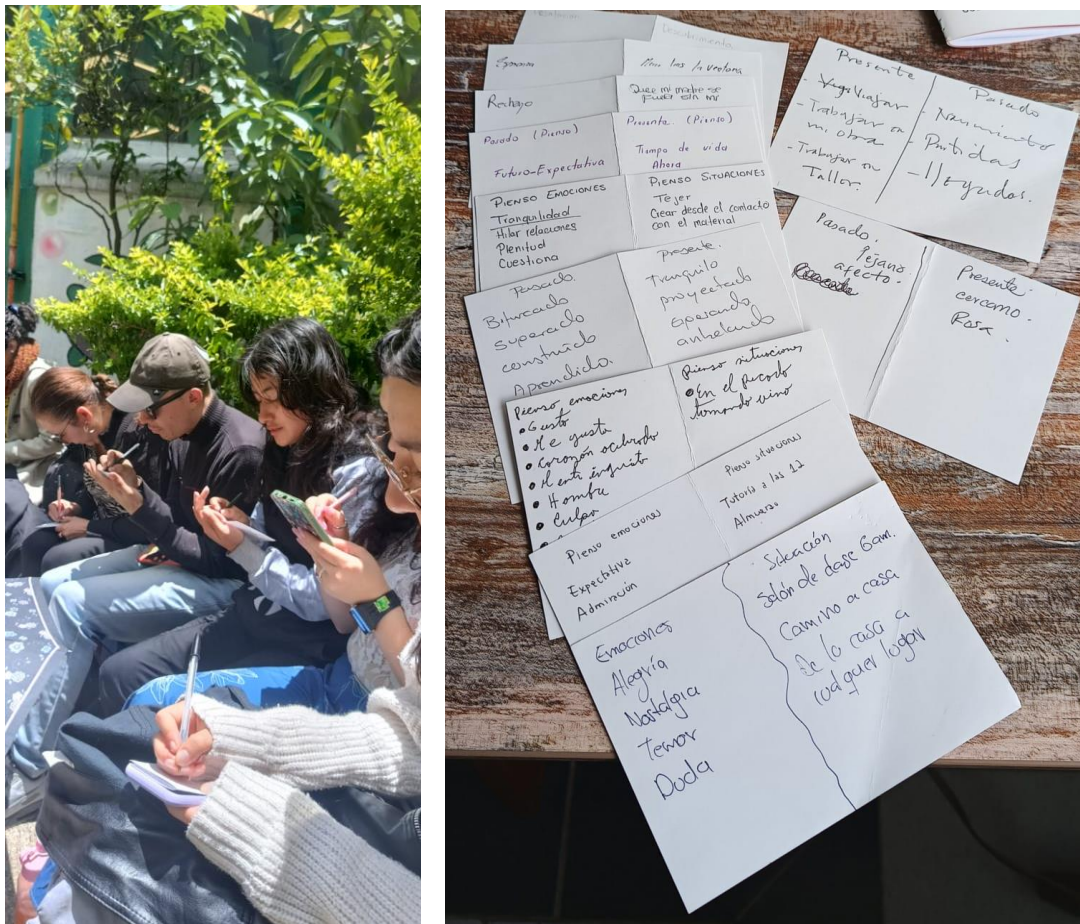 Descubrimiento
Mirar las la ventana
Rechazo
Que mi madre se
fuera sin mi
Pasado (Pienso)
Futuro-Expectativa
Presente (Pienso)
Tiempo de vida
Ahora
PIENSO EMOCIONES
Tranquilidad
Hilar relaciones
Plenitud
Cuestiona
PIENSO SITUACIONES
Tejer
Crear desde el contacto
con el material
Pasado
Bifurcado
Superado
construido
Aprendido.
presente.
Tranquilo
proyectado
esperando
anhelando
Pienso emociones
• Gusto
• Me gusta
• Corazón acelerado
• Mente inquieta
• Hombre
• Culpa
Pienso situciones
• En el pecado
tomando vino
Pienso emociones
Expectativa
Admiración
Pienso situaciones
Tutoría a las 12
Almuerzo
Emociones
Alegría
Nostalgia
Temor
Duda
Situación
Salón de clase 6am.
Camino a casa
De la casa a
cualquier lugar
Presente
Viajar
- Trabajar en
mi obra
- Trabajar en
Taller.
Pasado
- Nacimiento
- Partidas
- llegadas.
Pasado.
lejano
afecto.
Presente
cercano.
Rosa